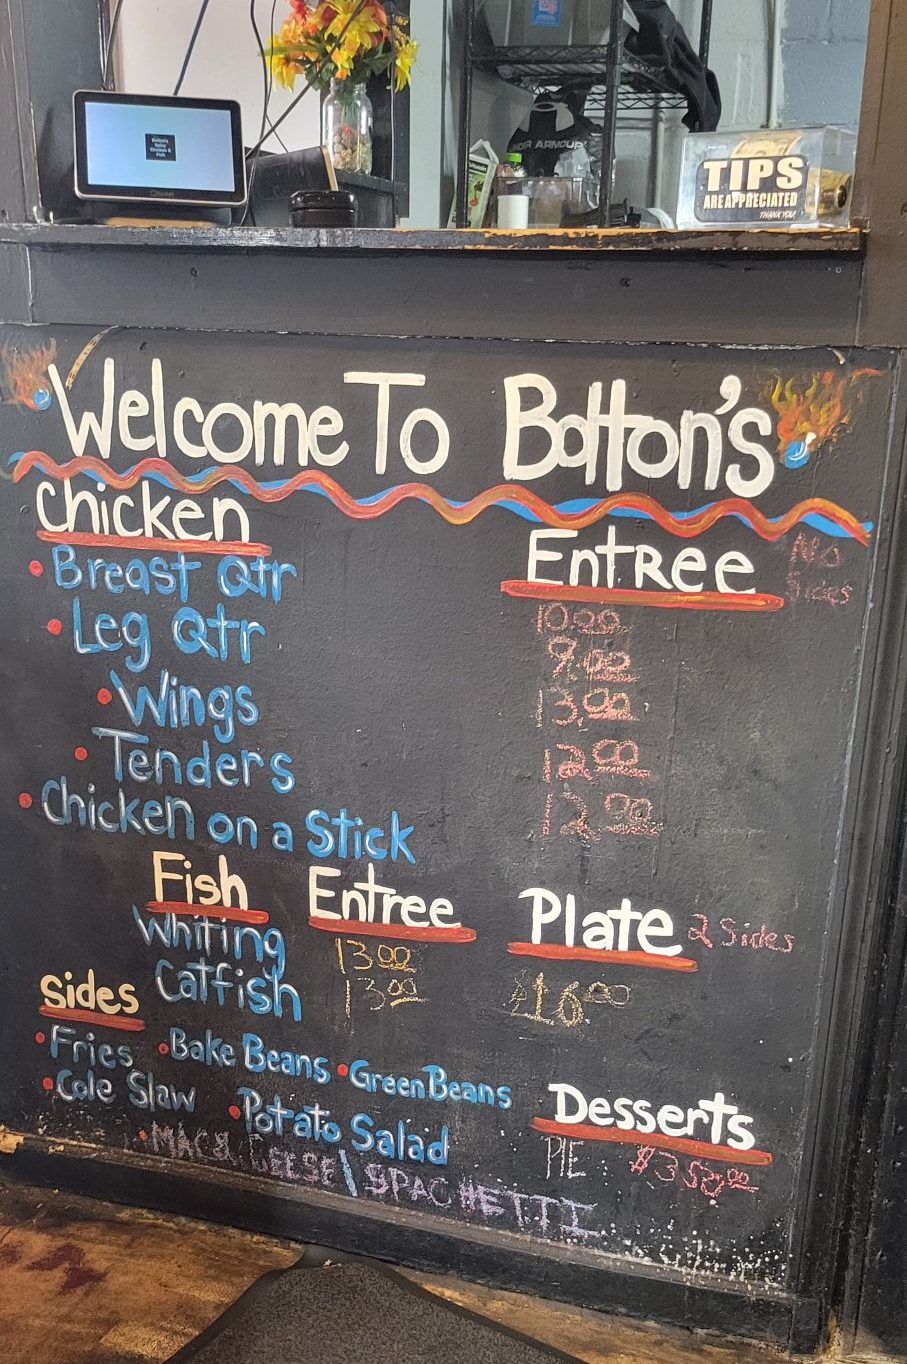 UNDER ARMOUR
TIPS
ARE APPRECIATED
THANK YOU
Welcome To Bolton's
Chicken
Entree
No Sides
Breast Qtr 10.00
Leg Qtr 9.00
Wings 13.00
Tenders 12.00
Chicken on a Stick 12.00
Fish Entree Plate 2 Sides
Whiting 13.00
Catfish 13.00 $16.00
Sides
Fries Bake Beans Green Beans
Cole Slaw Potato Salad
MAC & CEESE \ SPAGHETTI
Desserts
PIE